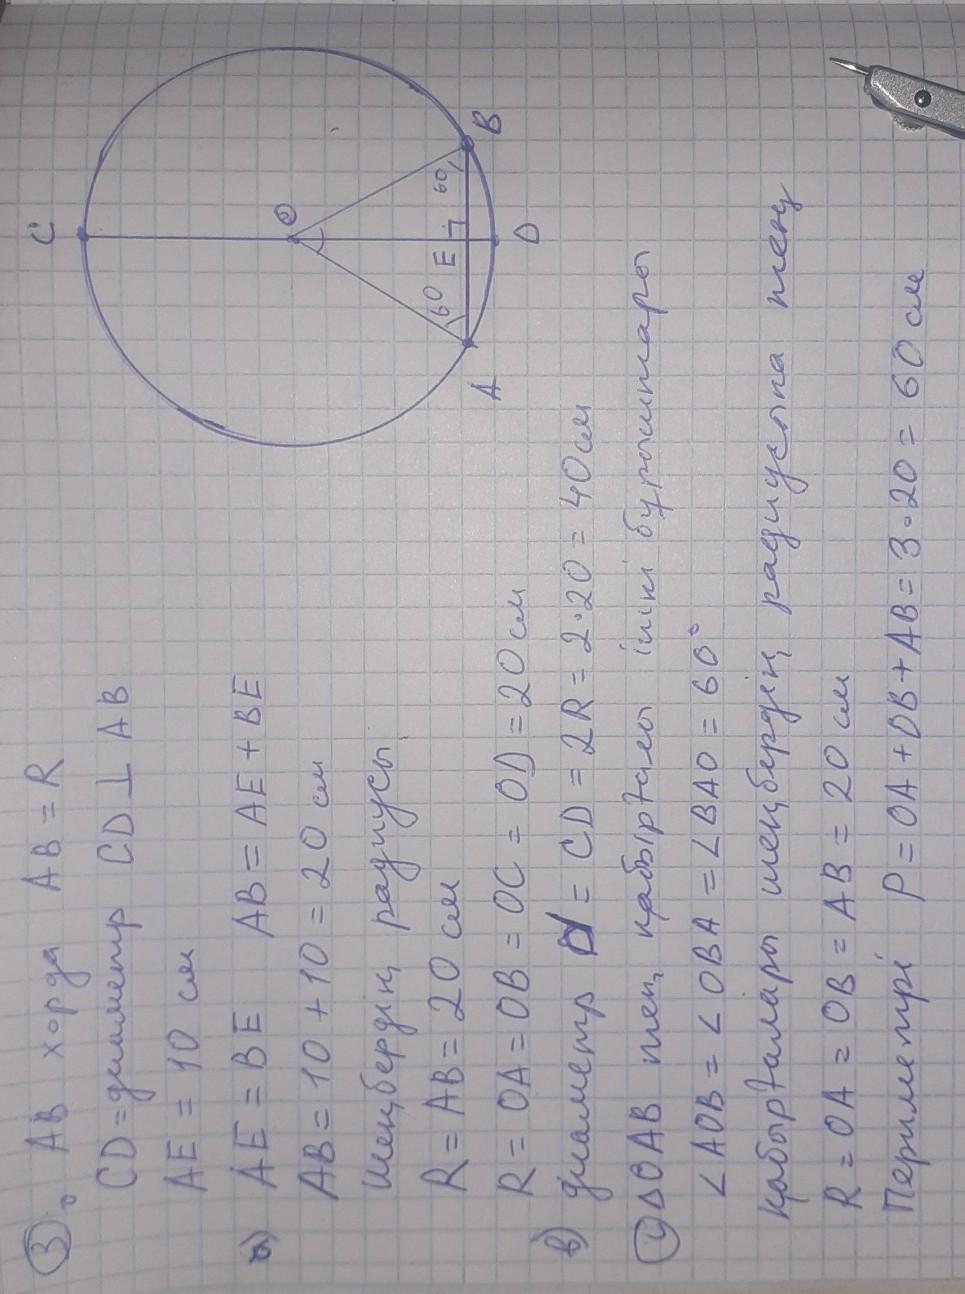 3. AB хорда AB = R
CD = диаметр CD ⊥ AB
AE = 10 см
a) AE = BE AB = AE + BE
AB = 10 + 10 = 20 см
Шеңбердің радиусы
R = AB = 20 см
R = OA = OB = OC = OD = 20 см
b) диаметр d = CD = 2R = 2·20 = 40 см
4) ΔOAB тең қабырғалы ішкі бұрыштары
∠AOB = ∠OBA = ∠BAO = 60°
қабырғалары шеңбердің радиусына тең
R = OA = OB = AB = 20 см
Периметрі P = OA + OB + AB = 3·20 = 60 см
C
O
60 E 60
A B
D